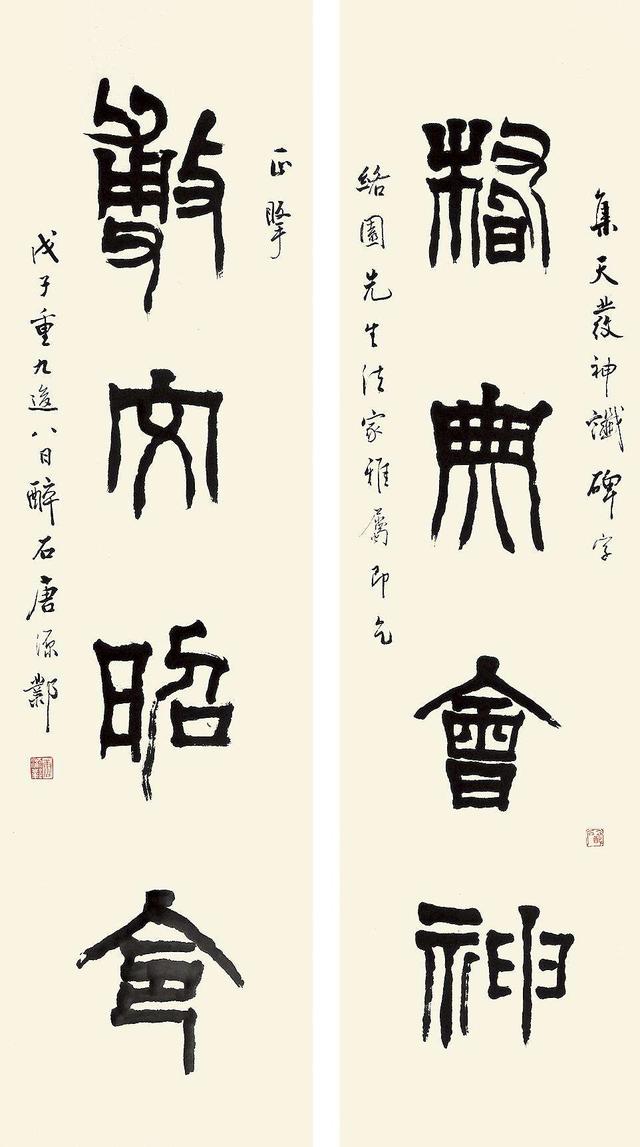 集天發神讖碑字
典會神
絡園先生法家雅屬即乞
正掔
敷文昭
戊子重九後八日醉石唐源鄴